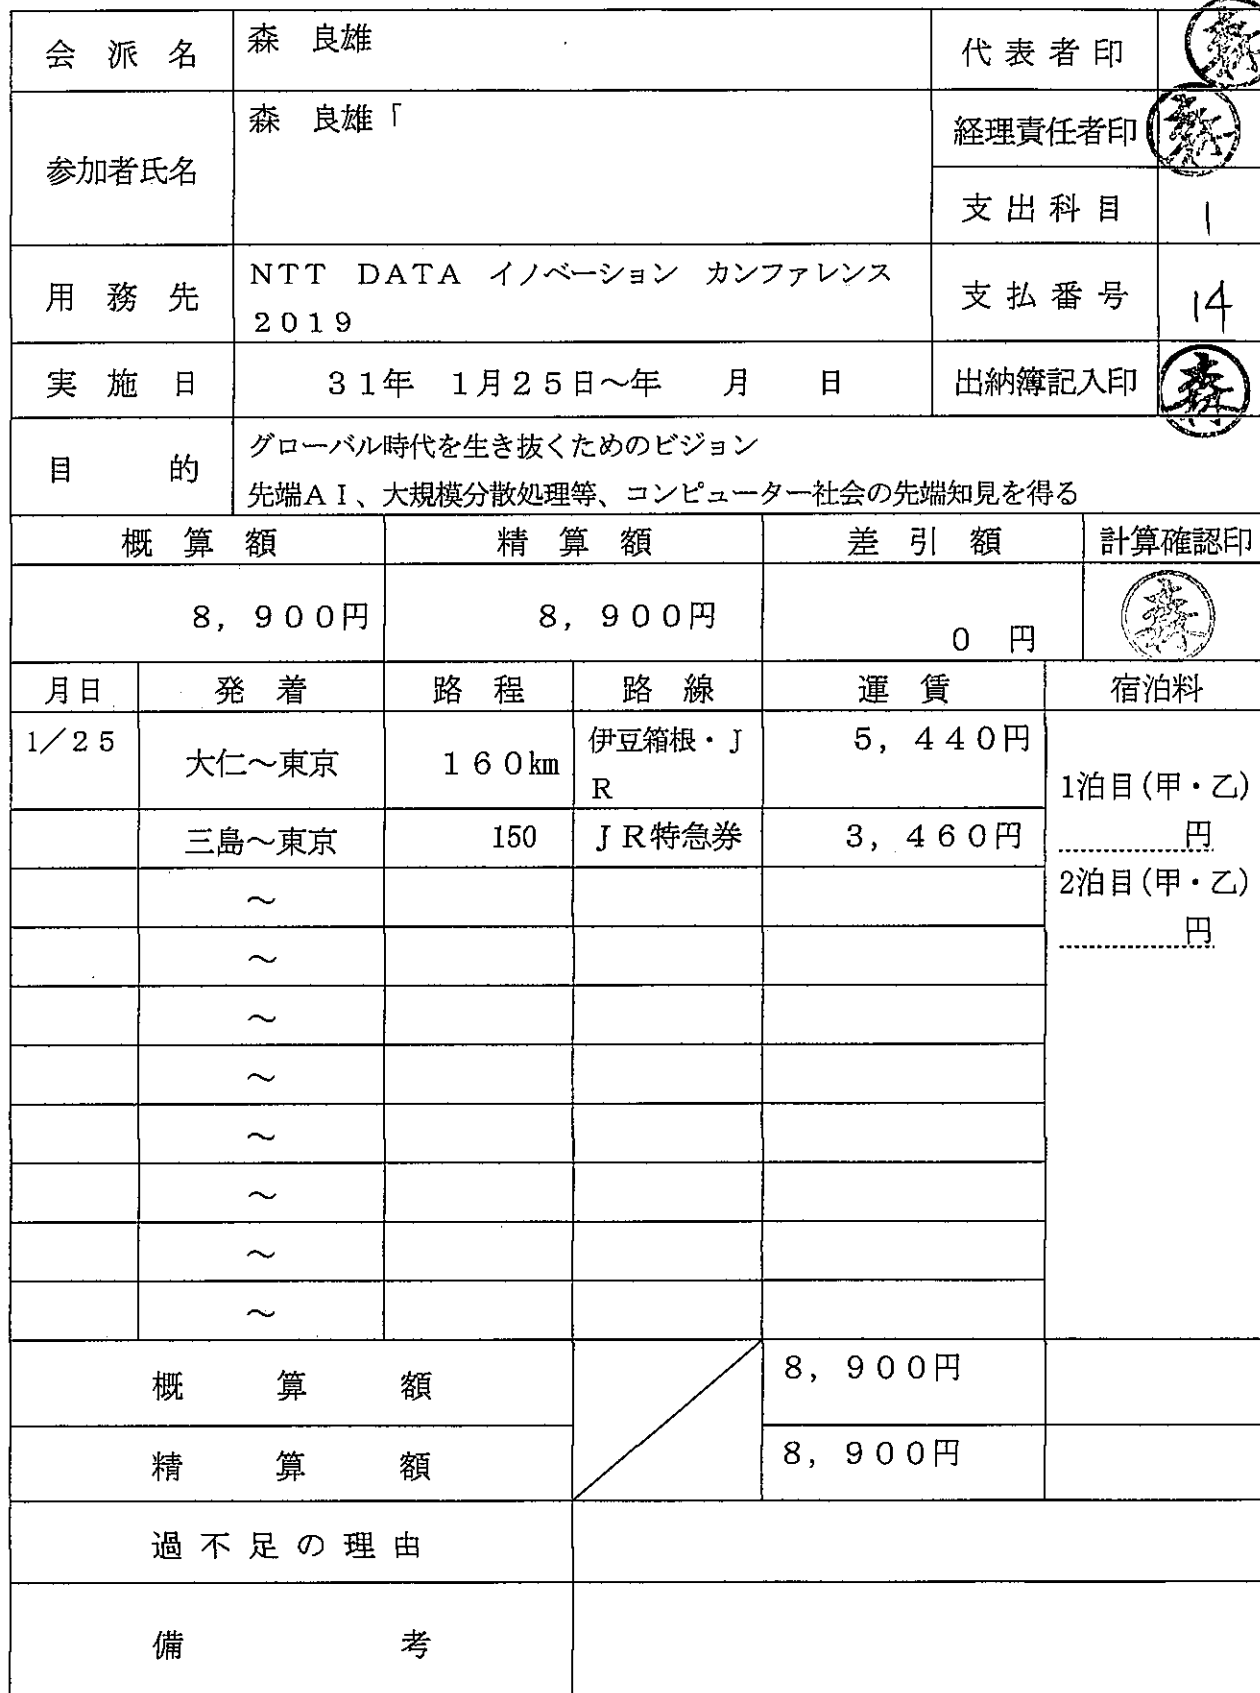 会派名 森　良雄 代表者印 森
参加者氏名 森　良雄「 経理責任者印 森
支出科目 1
用務先 ＮＴＴ　ＤＡＴＡ　イノベーション　カンファレンス
２０１９
支払番号 14
実施日 ３１年　１月２５日～年　月　日 出納簿記入印 森
目的 グローバル時代を生き抜くためのビジョン
先端ＡＩ、大規模分散処理等、コンピューター社会の先端知見を得る
概算額 精算額 差引額 計算確認印
８，９００円 ８，９００円 ０　円 森
月日 発着 路程 路線 運賃 宿泊料
1／２５ 大仁～東京 １６０㎞ 伊豆箱根・Ｊ
Ｒ
５，４４０円
1泊目(甲・乙)
円
三島～東京 150 ＪＲ特急券 ３，４６０円
2泊目(甲・乙)
円
～
～
～
～
～
～
～
～
概算額 ８，９００円
精算額 ８，９００円
過不足の理由
備考